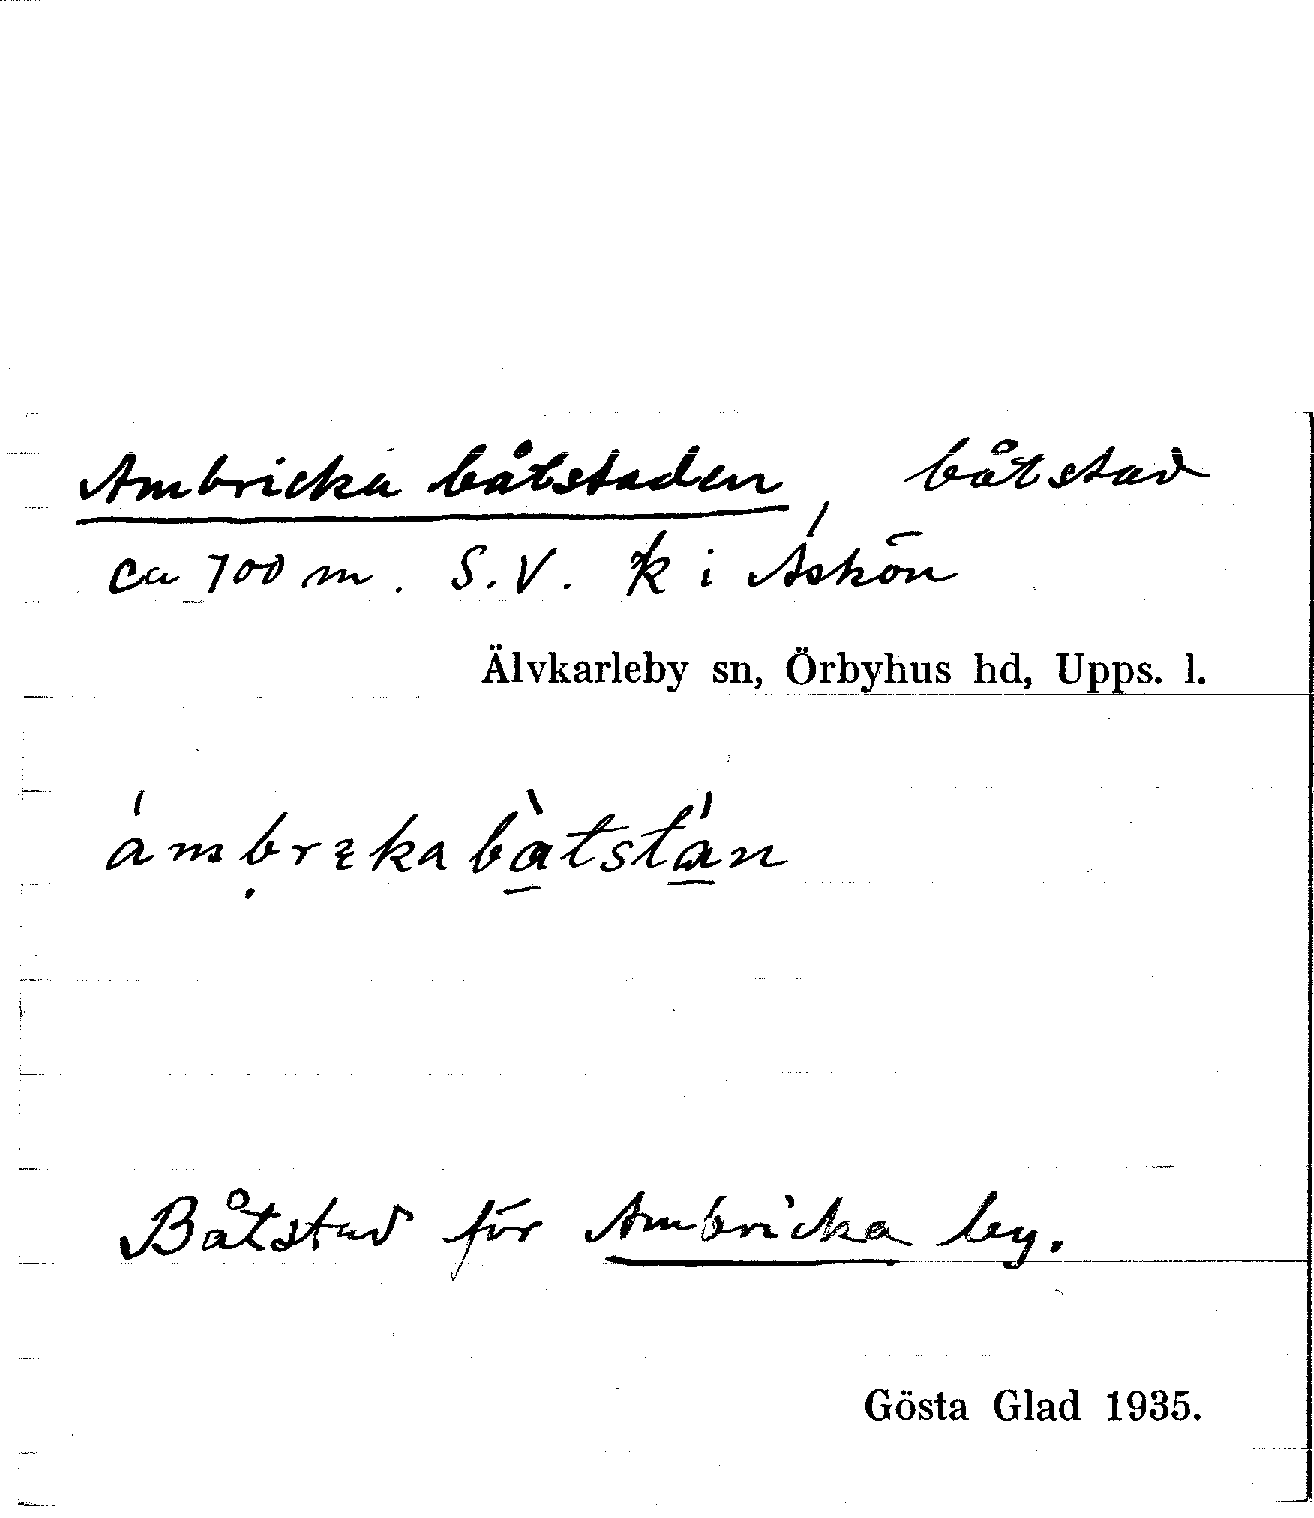 Ambricka båtstaden, båtstad
ca 700 m. S.V. k i Askön
Älvkarleby sn, Örbyhus hd, Upps. l.
Båtstad för Ambricka by.
Gösta Glad 1935.